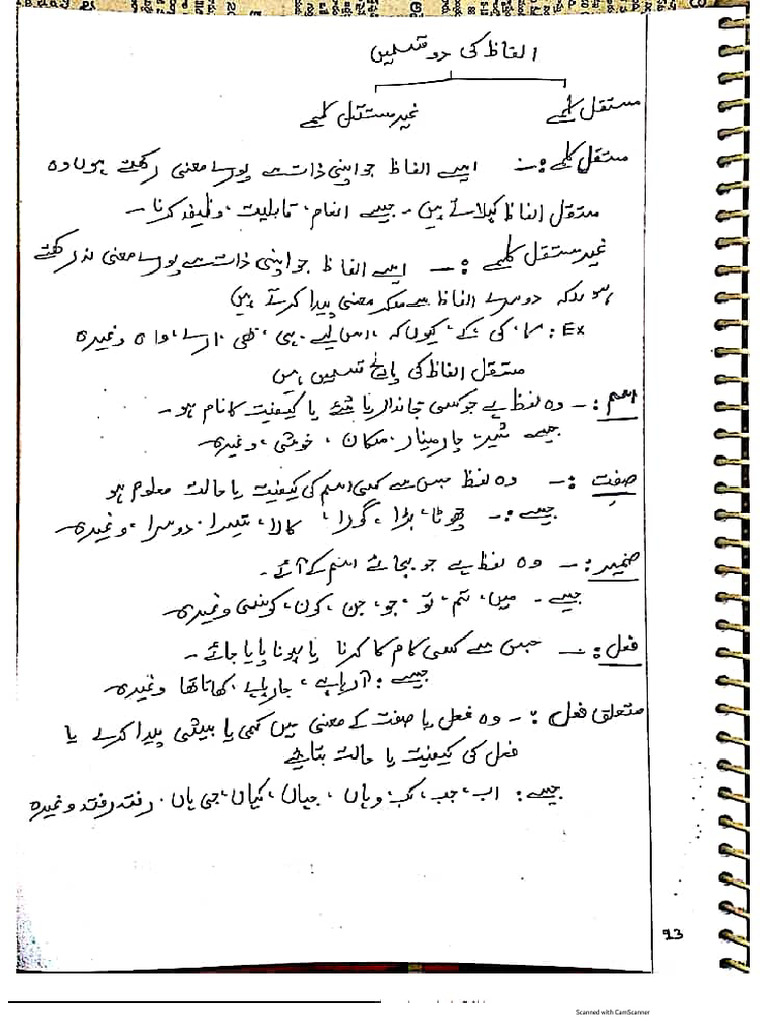 الفاظ کی دو قسمیں
مستقل کلمے
غیر مستقل کلمے
مستقل کلمے :- ایسے الفاظ جو اپنی ذات سے پورے معنی رکھتے ہوں وہ
مستقل الفاظ کہلاتے ہیں - جیسے انعام، قابلیت، وظیفہ کرنا -
غیر مستقل کلمے :- ایسے الفاظ جو اپنی ذات سے پورے معنی نہ رکھتے
ہو بلکہ دوسرے الفاظ سے ملکر معنی پیدا کرتے ہیں
Ex : کا، کی، کے، کیوں کہ، اس لیے، ہی، بھی، ارے، واہ وغیرہ
مستقل الفاظ کی پانچ قسمیں ہیں
اسم :- وہ لفظ ہے جو کسی جاندار یا شئے یا کیفیت کا نام ہو -
جیسے شیر، چار مینار، مکان، خوشی، وغیرہ -
صفت :- وہ لفظ جس سے کسی اسم کی کیفیت یا حالت معلوم ہو
جیسے :- چھوٹا، بڑا، گورا، کالا، تیسرا، دوسرا، وغیرہ -
ضمیر :- وہ لفظ ہے جو بجائے اسم کے آئے -
جیسے - میں، تم، تو، جو، جن، کون، کونسی وغیرہ -
فعل :- جس سے کسی کام کا کرنا یا ہونا پایا جائے -
جیسے : آرہا ہے، جارہا ہے، کھاتا تھا وغیرہ -
متعلق فعل :- وہ فعل یا صفت کے معنی میں کمی یا بیشی پیدا کرے یا
فعل کی کیفیت یا حالت بتائے
جیسے : اب، جب، کب، وہاں، جہاں، کہاں، جی ہاں، رفتہ رفتہ وغیرہ
93
Scanned with CamScanner